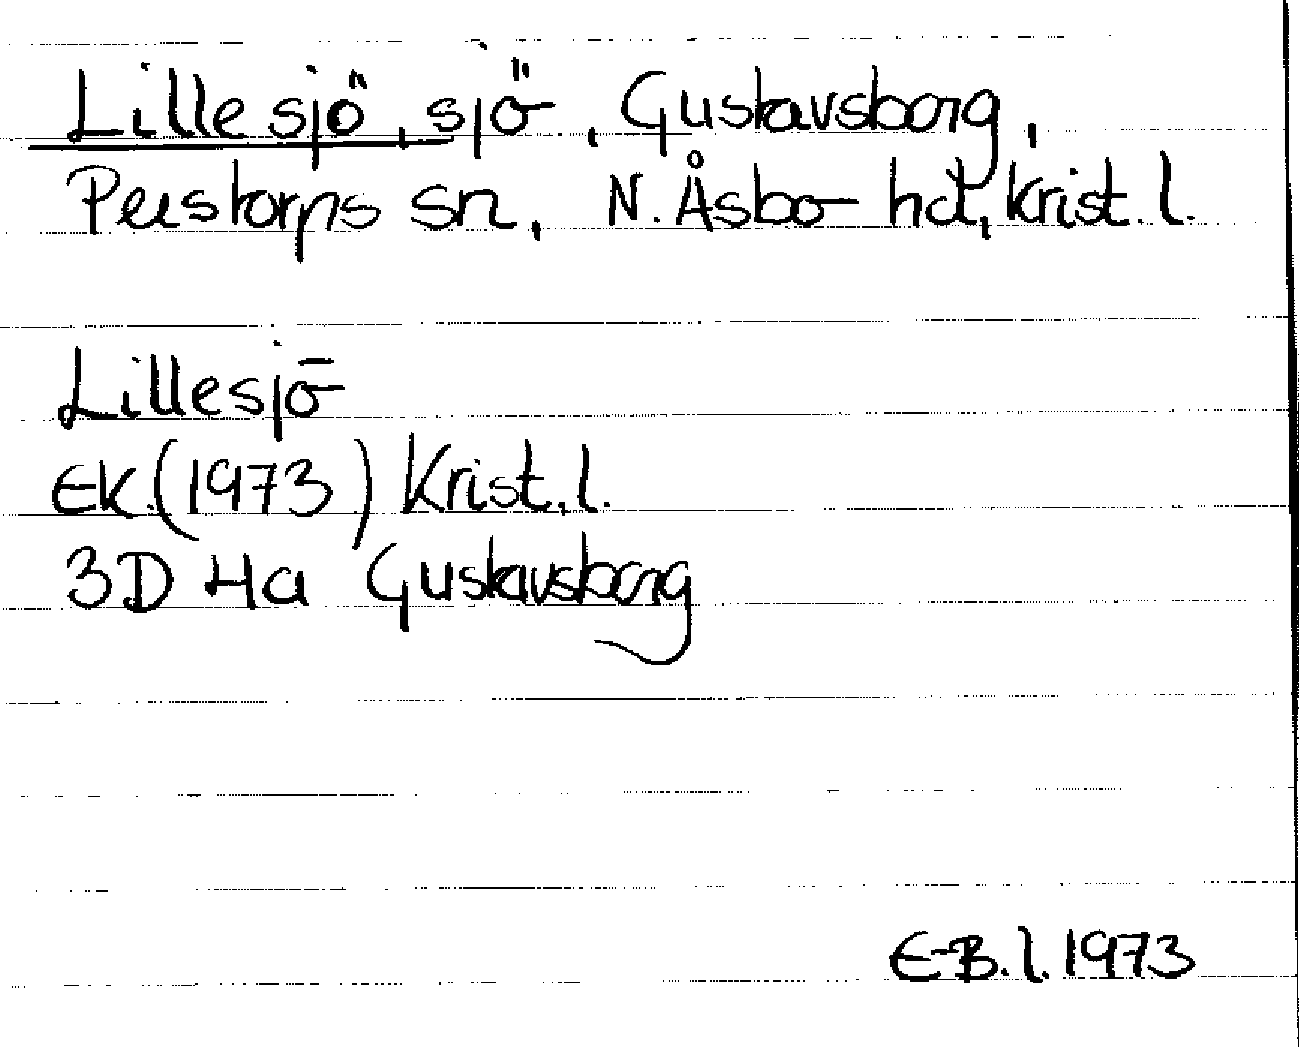 Lillesjö, sjö, Gustavsborg,
Perstorps sn, N. Åsbo hd, Krist. l.
Lillesjö
EK. (1973) Krist. l.
3D 4a Gustavsborg
E-B. l. 1973